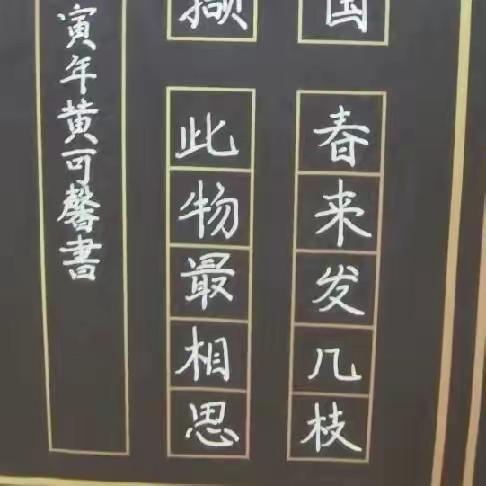 国
春来发几枝
撷
此物最相思
寅年黄可馨书